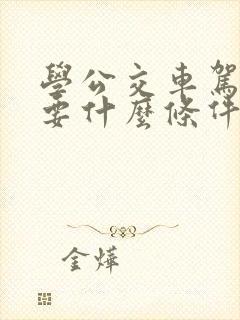 學公交車駕
要什麼條件
金燁